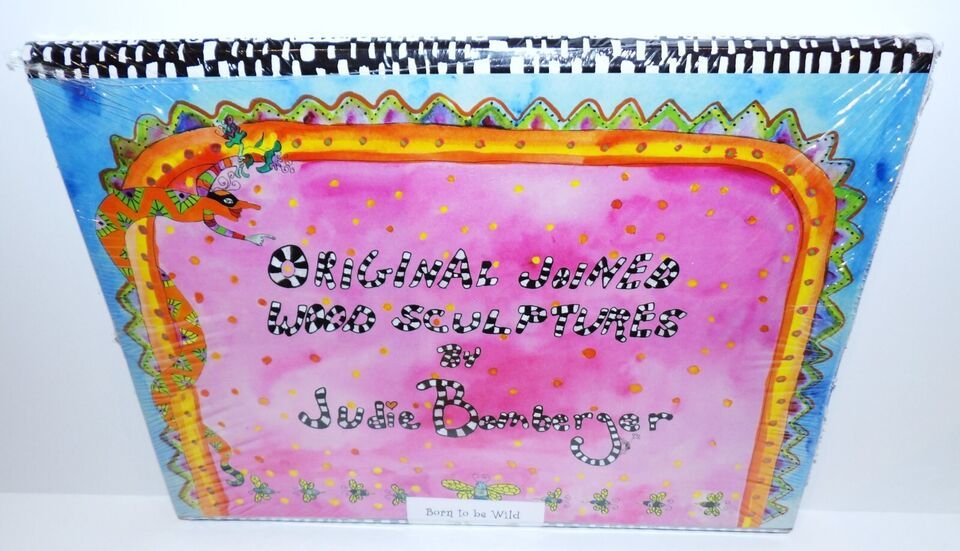 ORIGINAL JOINED
WOOD SCULPTURES
BY
Judie Bomberger
Born to be Wild